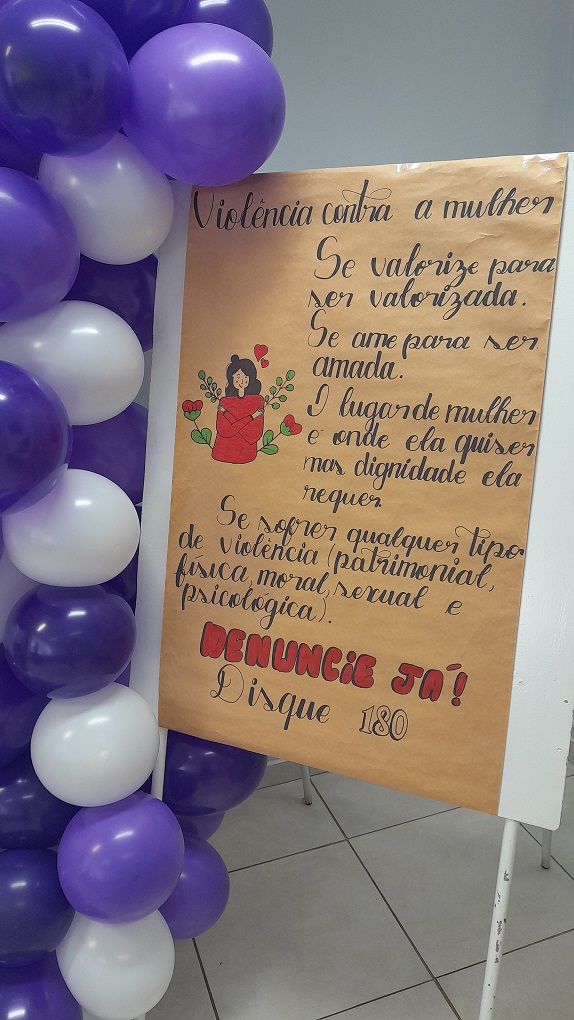 Violência contra a mulher
Se valorize para
ser valorizada.
Se ame para ser
amada.
O lugar de mulher
é onde ela quiser
mas dignidade ela
requer.
Se sofrer qualquer tipo
de violência (patrimonial,
física, moral, sexual e
psicológica).
DENUNCiE JÁ!
Disque 180